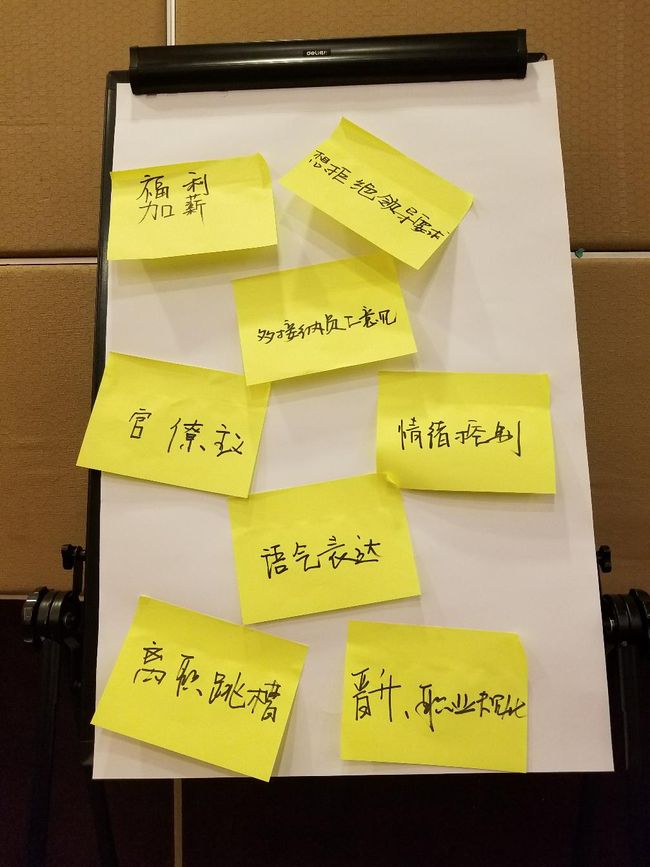 deli得力
福利
加薪
想拒绝领导要求
多接纳员工意见
官僚主义
情绪控制
语气表达
离职跳槽
晋升、职业规化